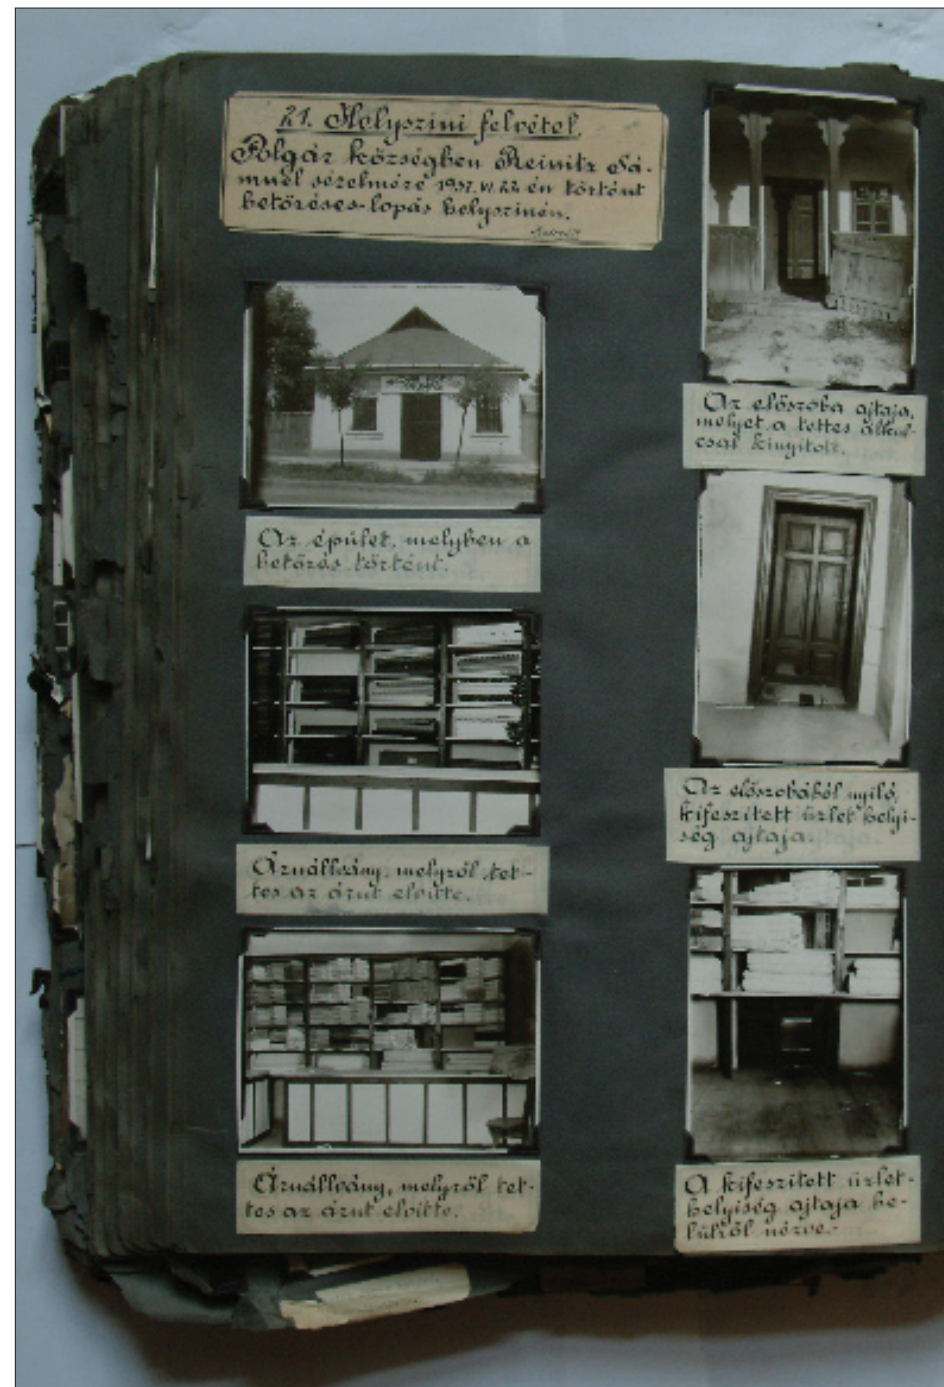 21. Helyszini felvétel
Polgár községben Reinitz Sá-
muel sérelmére 1937. VI. 22-én történt
betöréses-lopás helyszinén.
Az épület, melyben a
betörés történt.
Áruállvány, melyről tet-
tes az árut elvitte.
Áruállvány, melyről tet-
tes az árut elvitte.
Az előszoba ajtaja,
melyet a tettes álkul-
csal kinyitott.
Az előszobából nyiló,
kifeszitett üzlet helyi-
ség ajtaja.
A kifeszitett üzlet-
helyiség ajtaja be-
lülről nézve.-